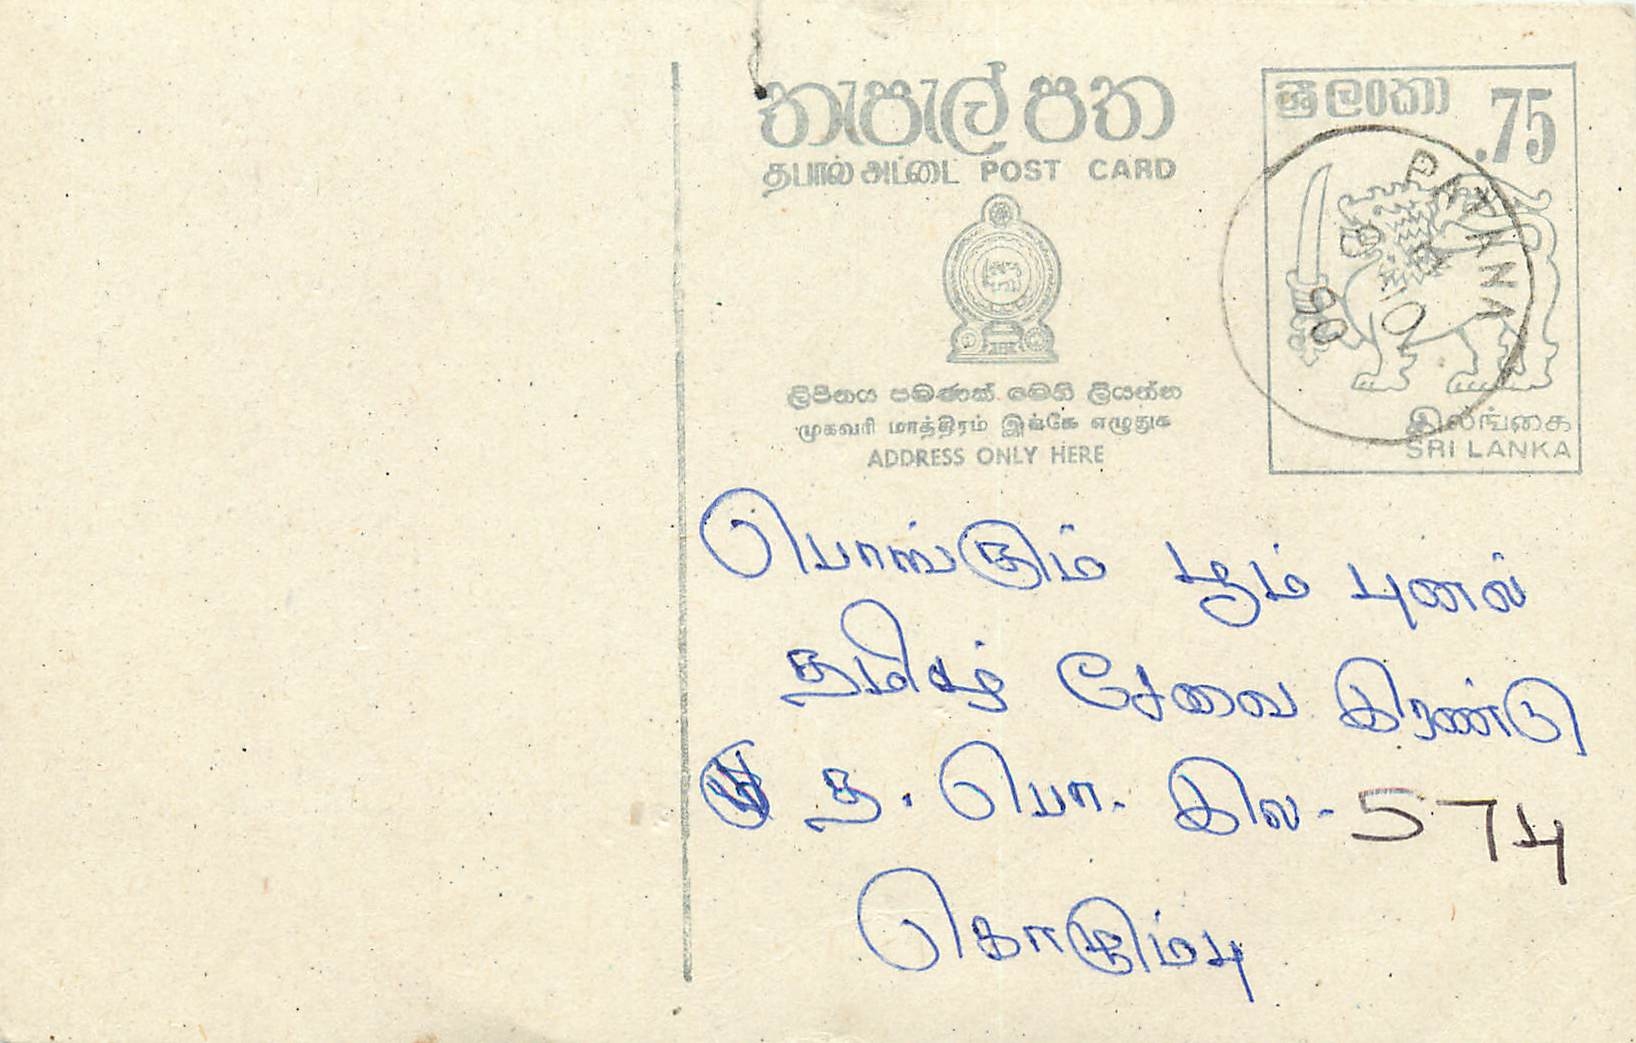 තැපැල් පත
தபால் அட்டை POST CARD
ශ්‍රී ලංකා
.75
PATANA
90
இலங்கை
SRI LANKA
ලිපිනය පමණක් මෙහි ලියන්න
முகவரி மாத்திரம் இங்கே எழுதுக
ADDRESS ONLY HERE
பூம் புனல்
தமிழ் சேவை இரண்டு
த. பெ. இல- 574
கொழும்பு